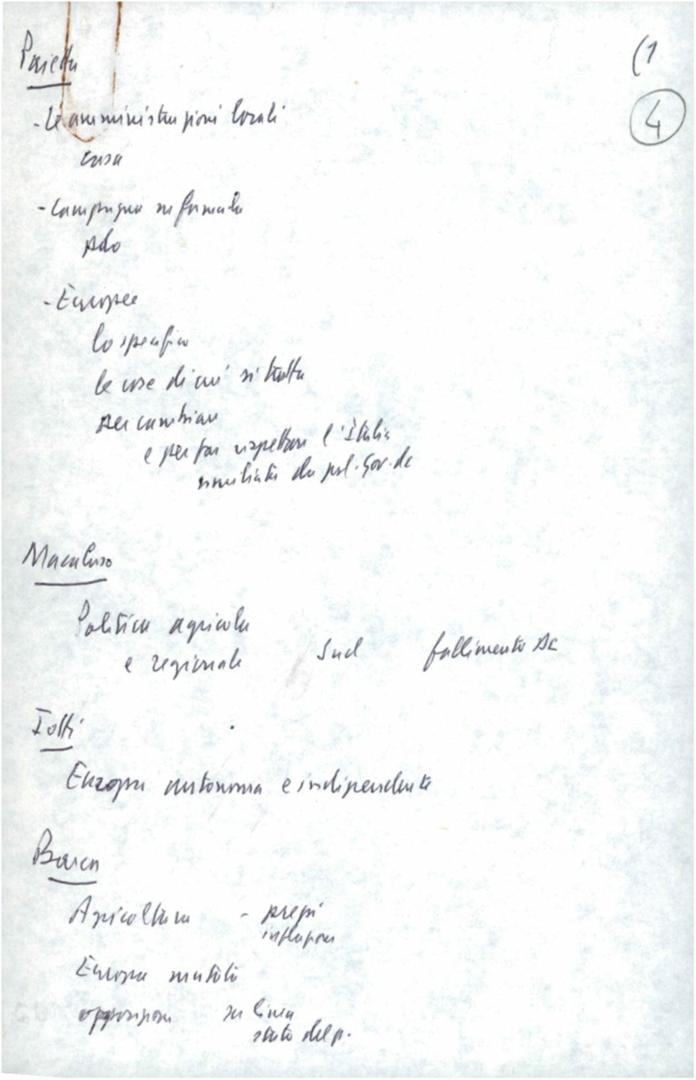 (1
4
Pajetta
- Le amministrazioni locali
casa
- Campagna su formula
- Europee
lo specifico
le cose di cui si tratta
per cambiare
e per far rispettare l'Italia
umiliata da pol. gov. dc
Macaluso
Politica agricola
e regionale Sud fallimento DC
Iotti
Europa autonoma e indipendente
Barca
Agricoltura - prezzi
inflazione
Europa
opposizione su linea
stato del p.